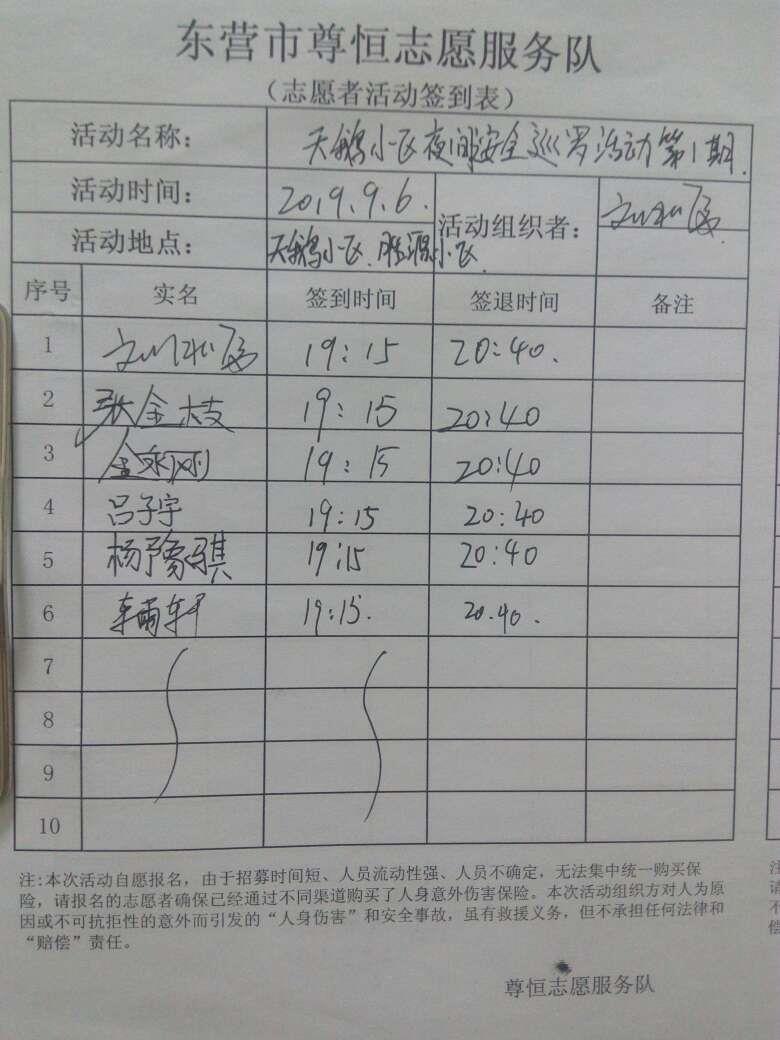 东营市尊恒志愿服务队
（志愿者活动签到表）
活动名称： 天鹅小区夜间安全巡罗活动第1期.
活动时间： 2019.9.6. 活动组织者：
活动地点： 天鹅小区、胜源小区.
序号 实名 签到时间 签退时间 备注
1 19:15 20:40.
2 张金枝 19:15 20:40
3 19:15 20:40
4 吕子宇 19:15 20:40
5 杨豫骐 19:15 20:40
6 车雨轩 19:15. 20.40.
7
8
9
10
注:本次活动自愿报名，由于招募时间短、人员流动性强、人员不确定，无法集中统一购买保
险，请报名的志愿者确保已经通过不同渠道购买了人身意外伤害保险。本次活动组织方对人为原
因或不可抗拒性的意外而引发的“人身伤害”和安全事故，虽有救援义务，但不承担任何法律和
“赔偿”责任。
尊恒志愿服务队